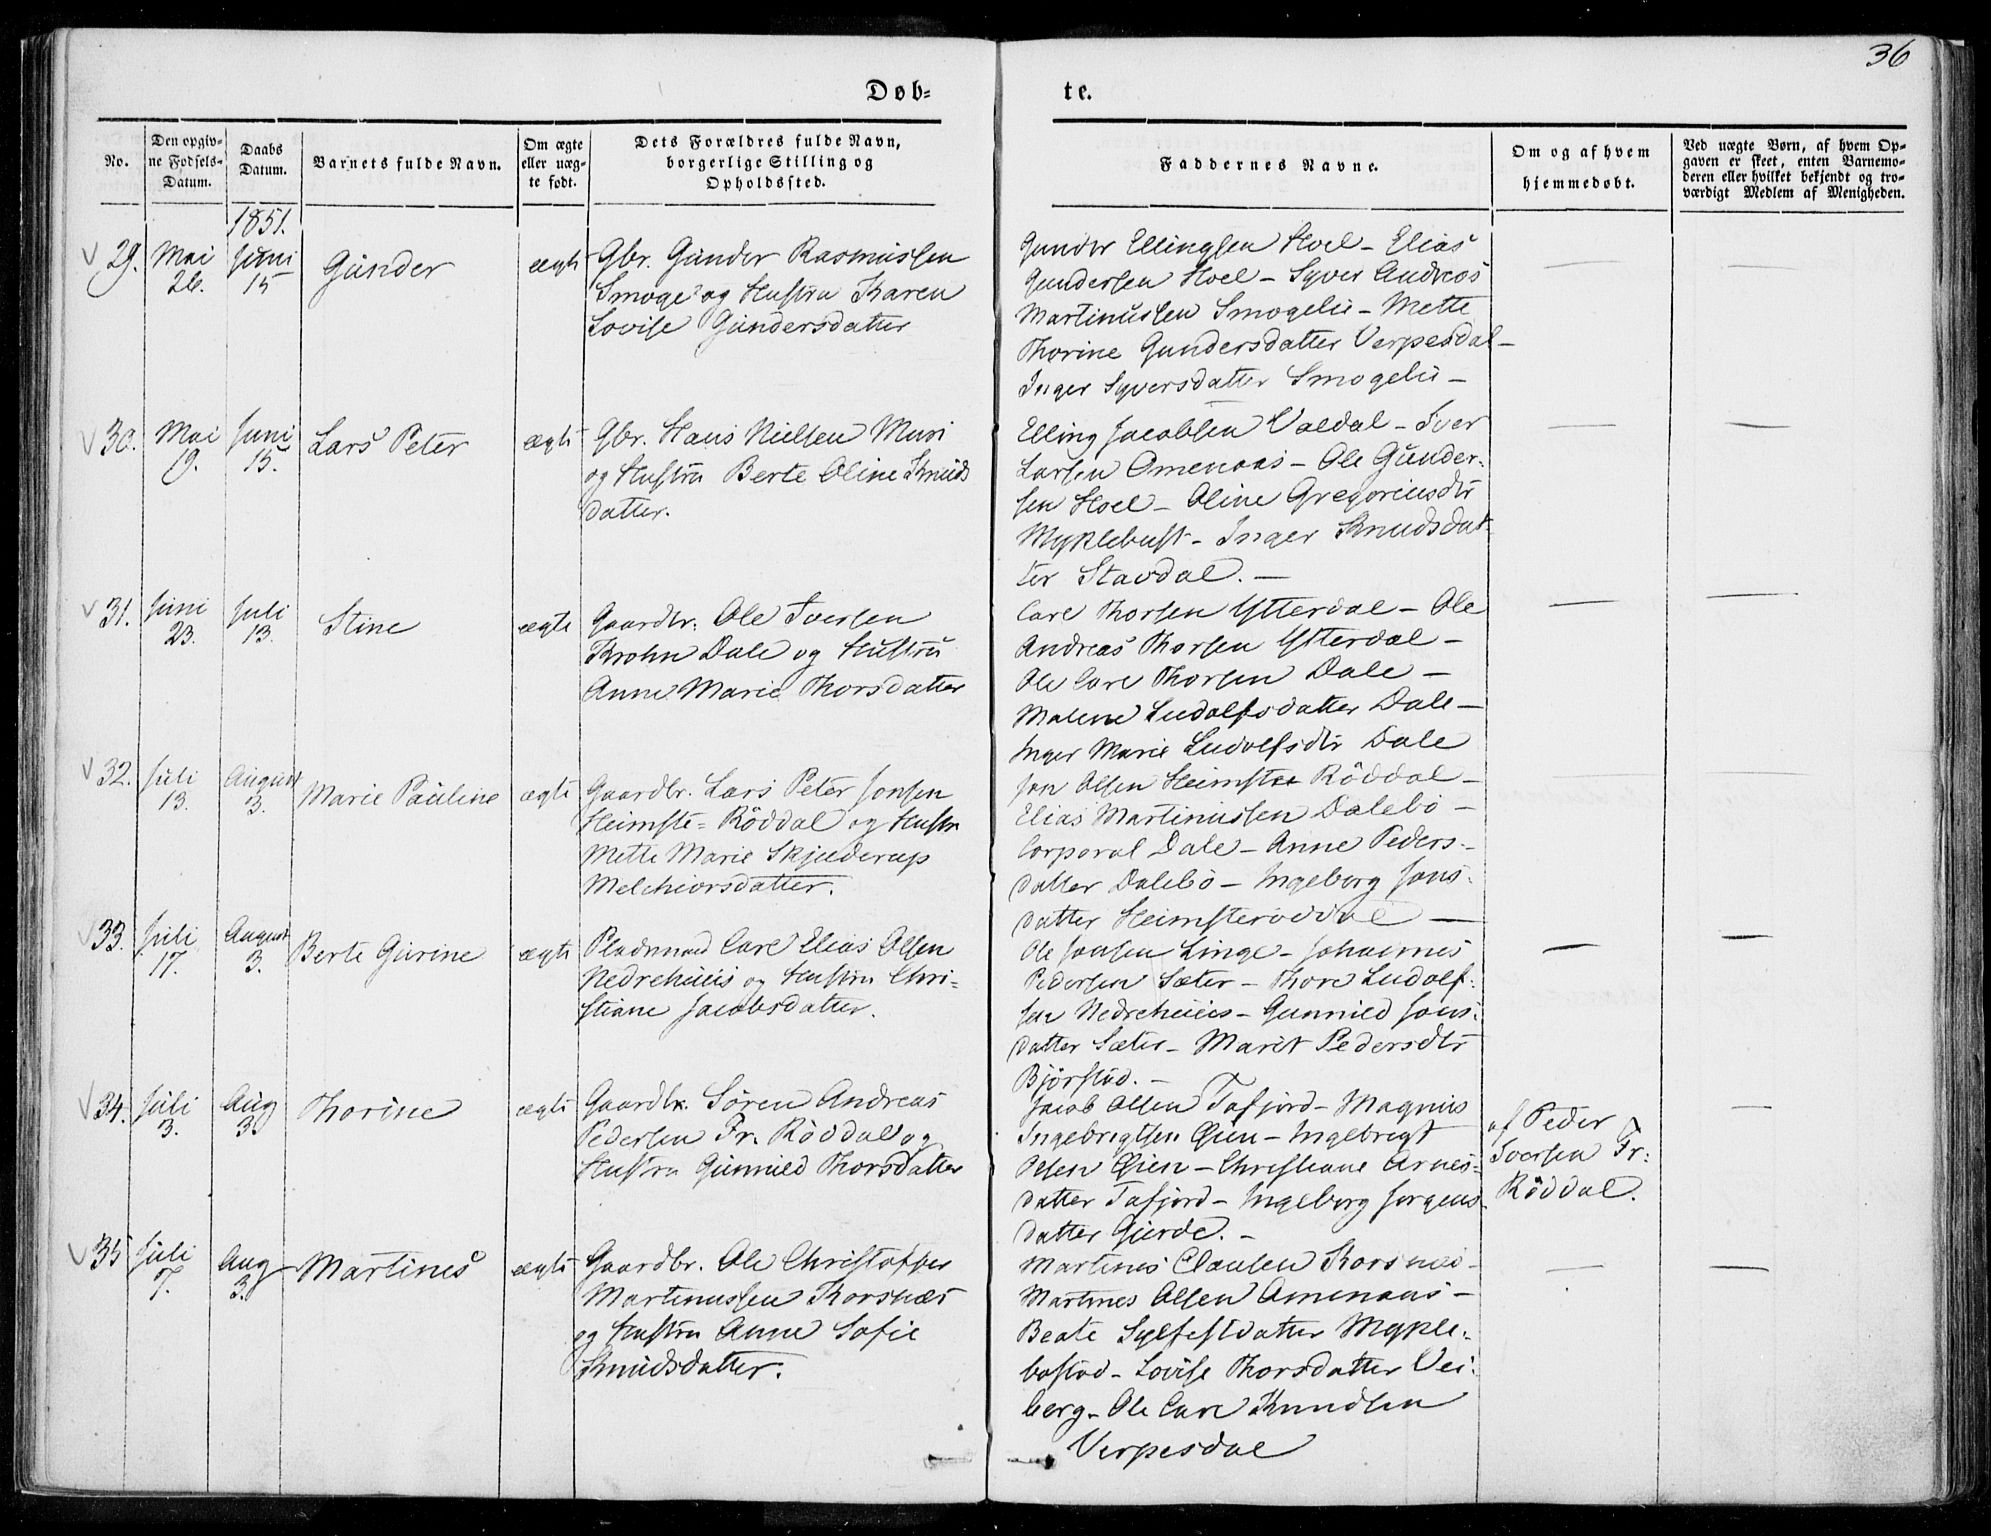 36
Døb-
te.
No.
Den opgiv-
ne Fødsels-
Datum.
Daabs
Datum.
Barnets fulde Navn.
Om ægte
eller uæg-
te født.
Dets Forældres fulde Navn,
borgerlige Stilling og
Opholdssted.
Faddernes Navne.
Om og af hvem
hjemmedøbt.
Ved uægte Børn, af hvem Op-
gaven er skeet, enten Barnemo-
deren eller hvilket bekjendt og tro-
værdigt Medlem af Menigheden.
1851.
29.
Mai
26.
Juni
15
Günder
ægte
Gbr. Günder Rasmussen
Smoge og Hustru Karen
Lovise Gündersdatter
Gunder Ellingsen Hoel – Elias
Gundersen Hoel – Syver Andreas
Martinussen Smogelie – Mette
Thorine Gundersdatter Verpesdal –
Inger Syversdatter Smogelie –
30.
Mai
19.
Juni
15.
Lars Peter
ægte
Gbr. Hans Nielsen Muri
og Hustru Berte Oline Knuds
datter.
Elling Jacobsen Valdal – Iver
Larsen Omenaas – Ole Günder-
sen Hoel – Oline Gregoriusdtr
Myklebust – Inger Knudsdat
ter Stavdal. –
31.
Juni
23.
Juli
13.
Stine
ægte
Gaardbr. Ole Iversen
Krohn Dale og Hustru
Anne Marie Thorsdatter
Carl Thorsen Ytterdal – Ole
Andreas Thorsen Ytterdal –
Ole Carl Thorsen Dale –
Malene Ludolfsdatter Dale –
Inger Marie Ludolfsdtr Dale
32.
Juli
13.
August
3.
Marie Pauline
ægte
Gaardbr. Lars Peter Jonsen
Heimste-Röddal og Hustr
Mette Marie Skjuderup
Melchiorsdatter.
Jon Olsen Heimste Röddal –
Elias Martinussen Dalebö –
Corporal Dale – Anne Peders-
datter Dalebö – Ingeborg Jons-
datter Heimsteröddal –
33.
Juli
17.
August
3.
Berte Gurine
ægte
Pladsmand Carl Elias Olsen
Nedrehuus og Hustru Chri-
stiane Jacobsdatter.
Ole Jonsen Linge – Johannes
Pedersen Sæter – Thore Ludolf-
sen Nedrehuus – Gunnild Jons-
datter Sæter – Marit Pedersdtr
Björstad. –
34.
Juli
3.
Aug
3.
Thorine
ægte
Gaardbr. Sören Andreas
Pedersen Fr. Röddal og
Hustru Gunnild Thorsdatter
Jacob Olsen Tafjord – Magnus
Ingebrigtsen Øien – Ingebrigt
Olsen Øien – Christiane Arnes-
datter Tafjord – Ingeborg Jorgens-
datter Gjerde. –
af Peder
Iversen Fr.
Röddal.
35
Juli
7.
Aug
3.
Martines
ægte
Gaardbr. Ole Christopher
Martinussen Korsnæs
og Hustru Anne Sofie
Knudsdatter.
Martinus Clausen Korsnæs –
Martines Olsen Omenaas –
Beate Sylfestdatter Mykle-
bostad – Lovise Thorsdatter Vei-
berg – Ole Carl Knudsen
Verpesdal